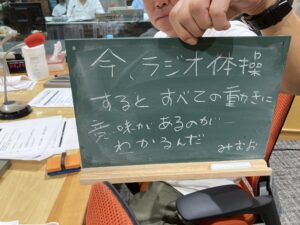 今、ラジオ体操
するとすべての動きに
意味があるのが
わかるんだ
みむお